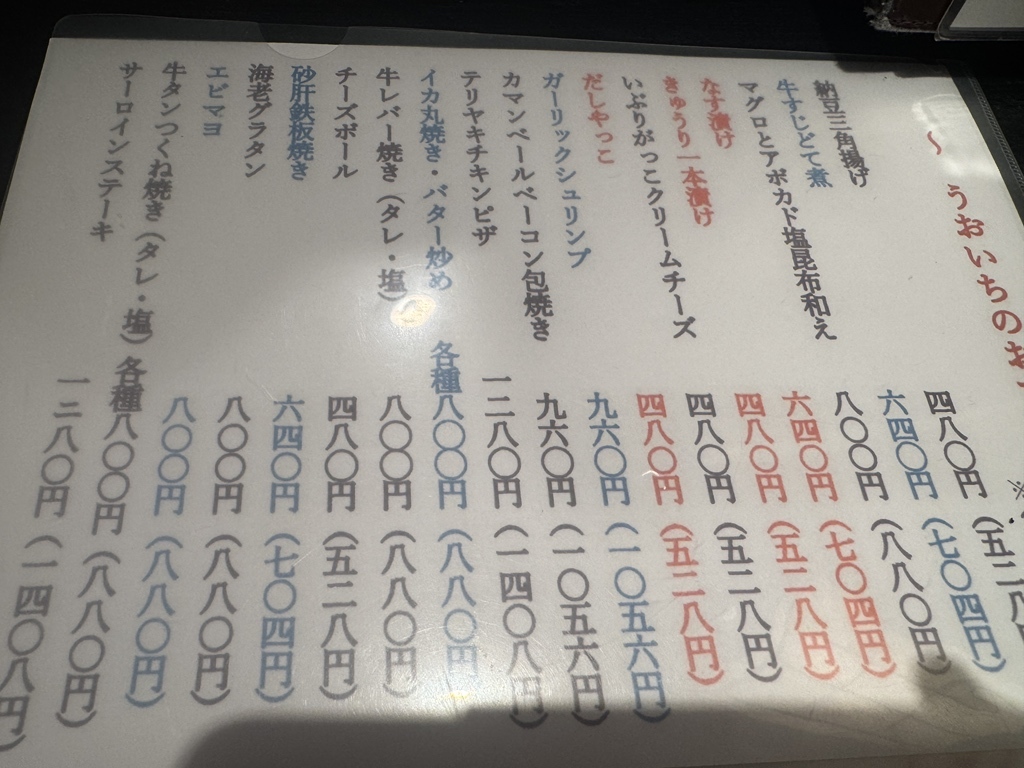 〜 うおいちのお
※
納豆三角揚げ 四八〇円 (五二八
牛すじどて煮 六四〇円 (七〇四円)
マグロとアボカド塩昆布和え 八〇〇円 (八八〇円)
なす漬け 六四〇円 (七〇四円)
きゅうり一本漬け 四八〇円 (五二八円)
いぶりがっこクリームチーズ 四八〇円 (五二八円)
だしやっこ 四八〇円 (五二八円)
ガーリックシュリンプ 九六〇円 (一〇五六円)
カマンベールベーコン包焼き 九六〇円 (一〇五六円)
テリヤキチキンピザ 一二八〇円 (一四〇八円)
イカ丸焼き・バター炒め 各種八〇〇円 (八八〇円)
牛レバー焼き(タレ・塩) 八〇〇円 (八八〇円)
チーズボール 四八〇円 (五二八円)
砂肝鉄板焼き 六四〇円 (七〇四円)
海老グラタン 八〇〇円 (八八〇円)
エビマヨ 八〇〇円 (八八〇円)
牛タンつくね焼き(タレ・塩) 各種八〇〇円 (八八〇円)
サーロインステーキ 一二八〇円 (一四〇八円)